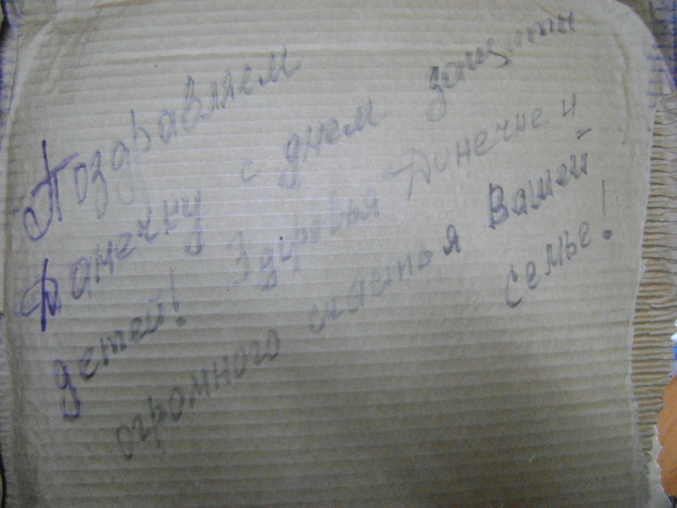 Поздравляем
Донечку с днем защиты
детей! Здоровья Донечке и
огромного счастья Вашей
семье!